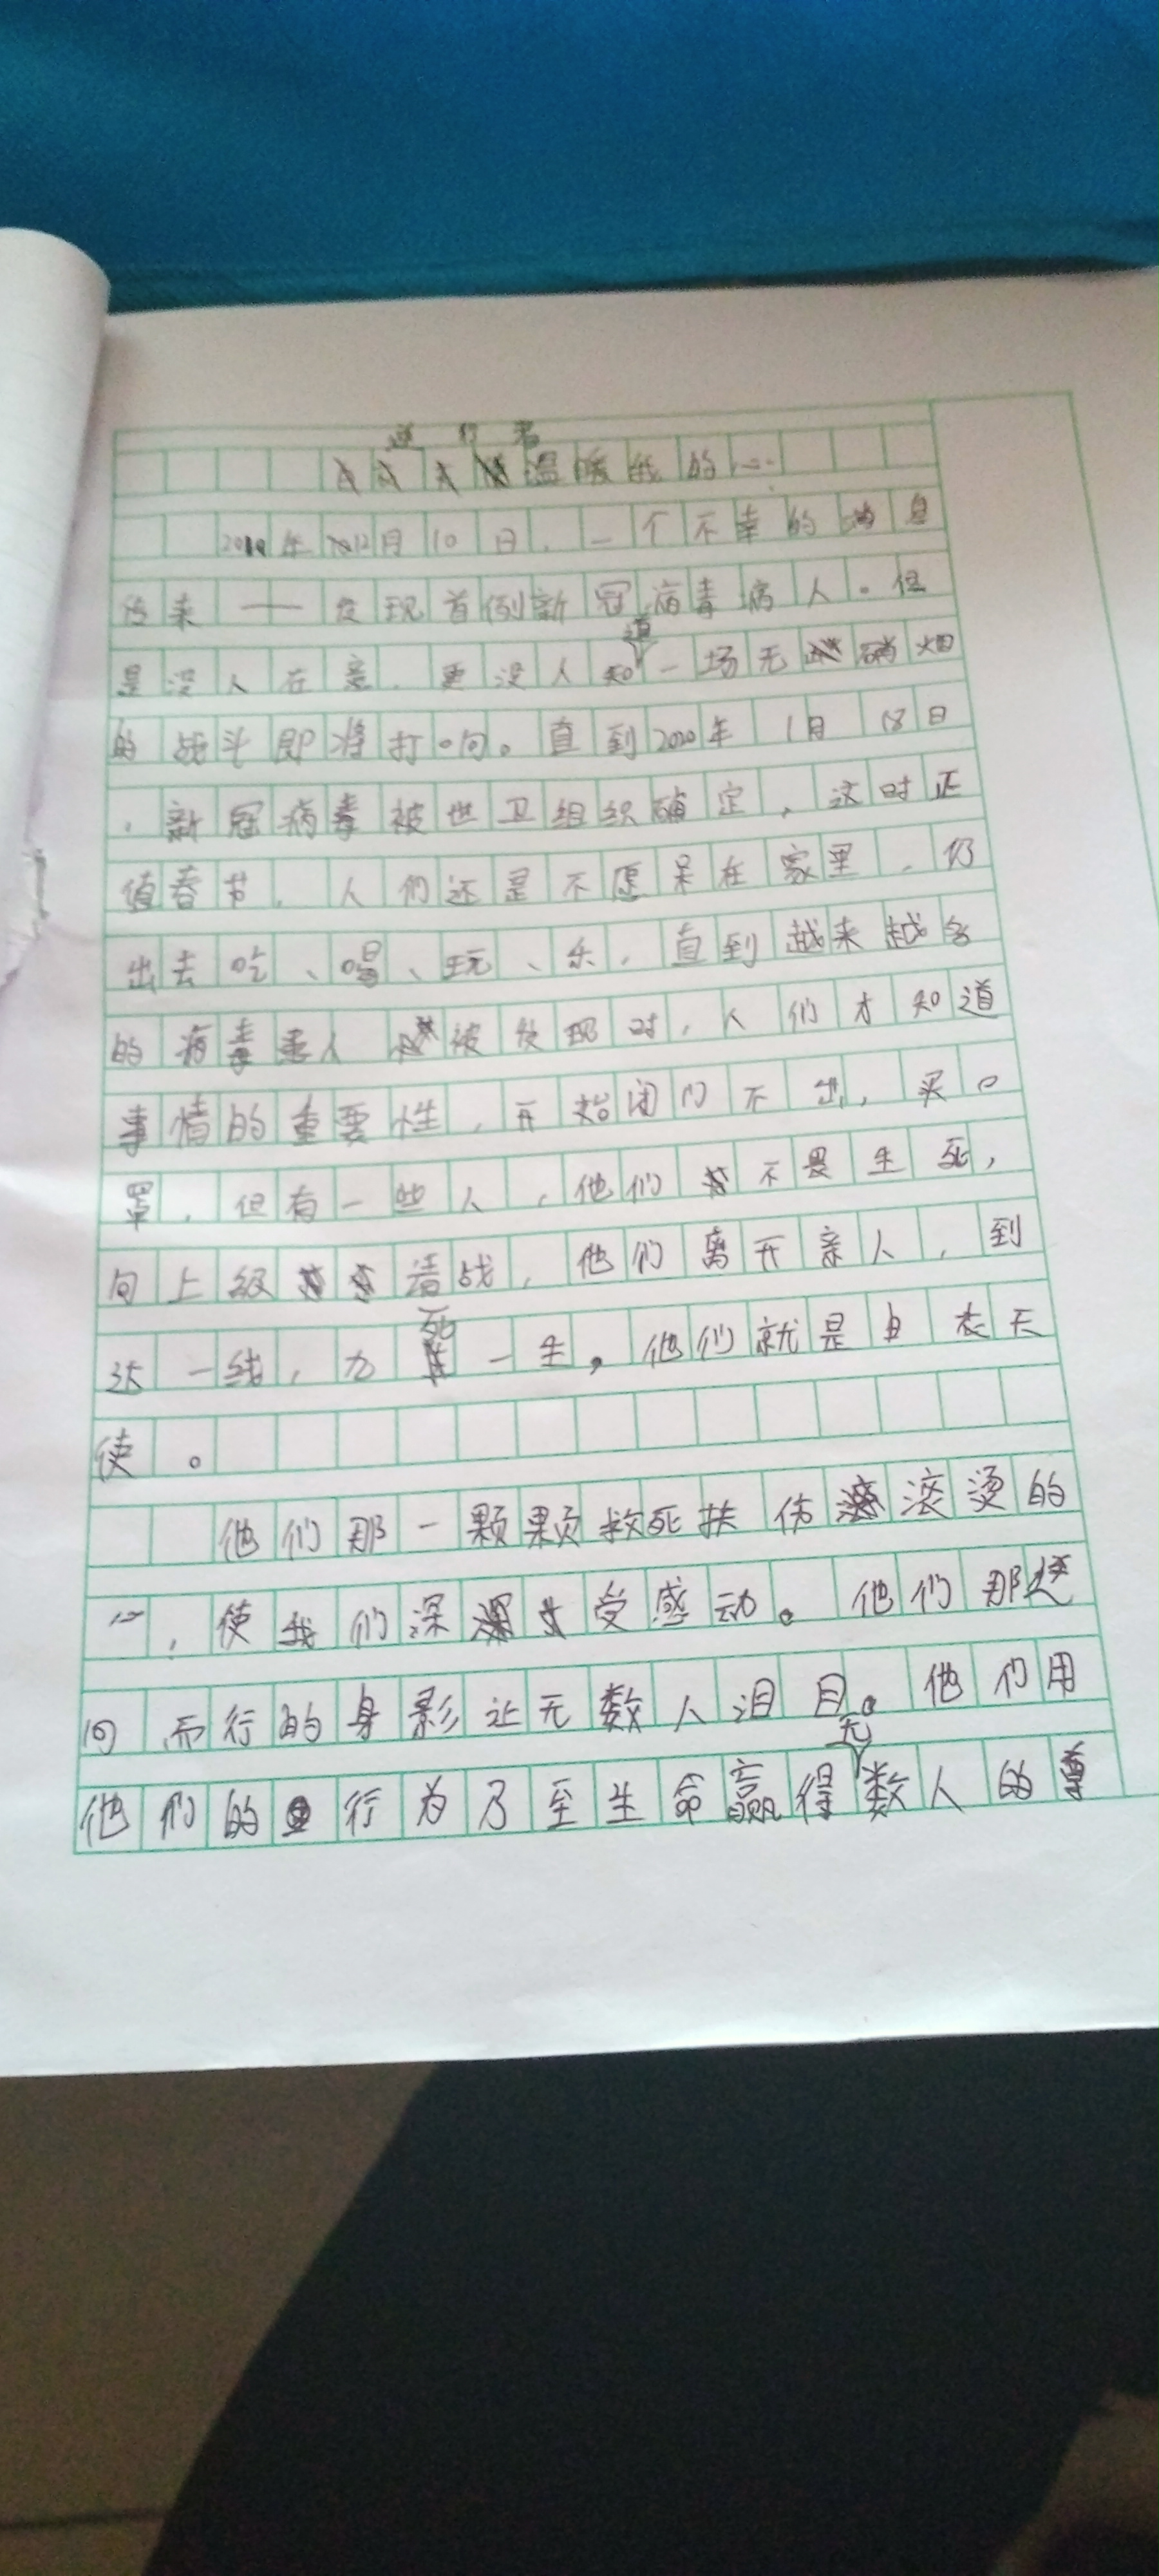 逆行者
温暖我的心
2019年12月10日，一个不幸的消息
传来——发现首例新冠病毒病人。但
是没人在意，更没人知道一场无硝烟
的战斗即将打响。直到2020年1月18日
，新冠病毒被世卫组织确定，这时正
值春节，人们还是不愿呆在家里，仍
出去吃、喝、玩、乐，直到越来越多
的病毒患人被发现时，人们才知道
事情的重要性，开始闭门不出，买口
罩，但有一些人，他们不畏生死，
向上级请战，他们离开亲人，到
达一线，九死一生，他们就是白衣天
使。
他们那一颗颗救死扶伤滚烫的
心，使我们深受感动。他们那逆
向而行的身影让无数人泪目。他们用
他们的行为乃至生命赢得无数人的尊